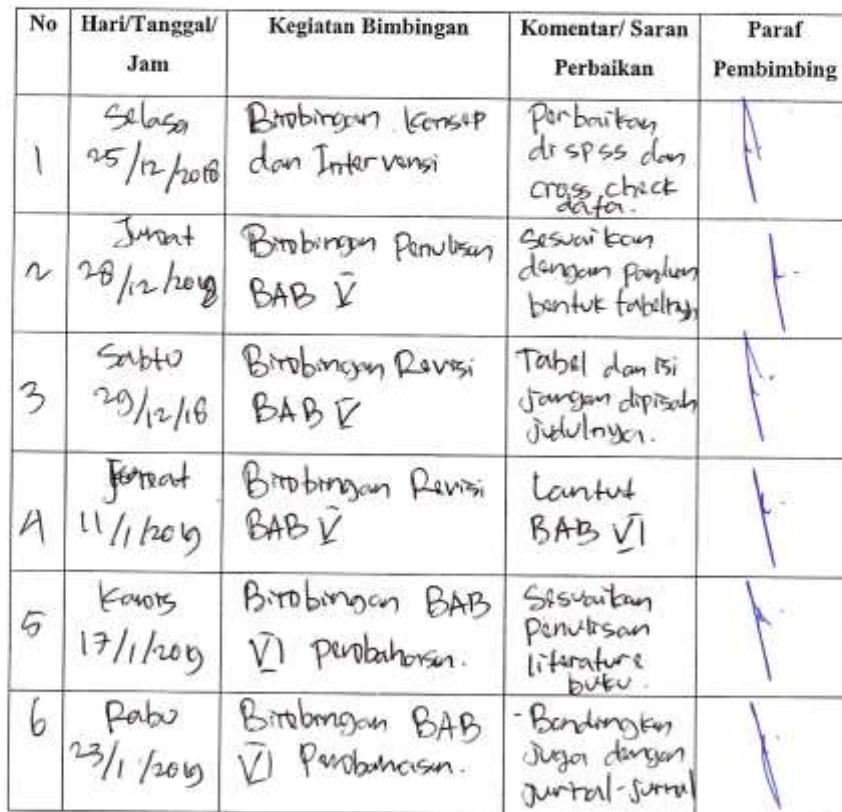 No Hari/Tanggal/ Kegiatan Bimbingan Komentar/ Saran Paraf
Jam Perbaikan Pembimbing
1 Selasa 25/12/2018 Bimbingan Konsep dan Intervensi Perbaikan di spss dan cross check data.
2 Jumat 28/12/2018 Bimbingan Penulisan BAB V Sesuaikan dengan bentuk tabelnya
3 Sabtu 29/12/18 Bimbingan Revisi BAB V Tabel dan isi jangan dipisah judulnya.
4 Jumat 11/1/2019 Bimbingan Revisi BAB V Lanjut BAB VI
5 Kamis 17/1/2019 Bimbingan BAB VI pembahasan. Sesuaikan Penulisan literature buku.
6 Rabu 23/1/2019 Bimbingan BAB VI Pembahasan. -Bandingkan juga dengan jurnal-jurnal